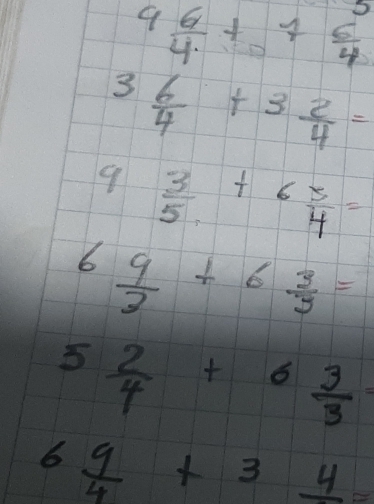 9 6/4 + 7 6/4
3 6/4 + 3 2/4 =
9 3/5 + 6 3/4 =
6 9/3 + 6 3/3 =
5 2/4 + 6 3/3 =
6 9/4 + 3 4 =